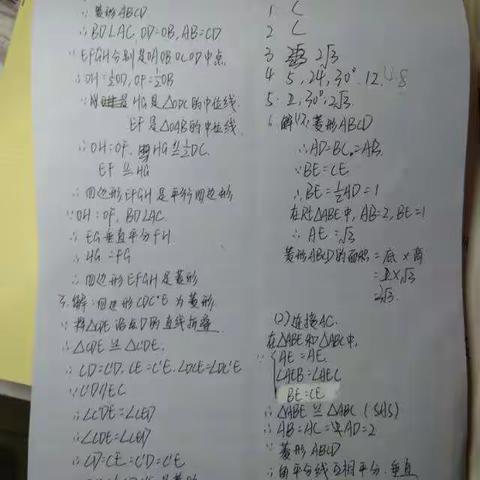 ∵菱形ABCD
∴BD⊥AC, OD=OB, AB=CD
∵EFGH分别是OB OC OD中点
∴OH=½OD, OF=½OB
是HG是△ODC的中位线
EF是△OAB的中位线
∴OH=OF, HG⫽½DC
EF⫽HG
∴四边形EFGH是平行四边形
∵OH=OF, BD⊥AC
∴EG垂直平分FH
∴HG=FG
∴四边形EFGH是菱形
3. 解:四边形CDC'E为菱形
∵将△CDE沿点D的直线折叠
∴△CDE≌△C'DE
∴CD=C'D, CE=C'E, ∠DCE=∠DC'E
∵C'D//EC
∴∠C'DE=∠CED
∴∠CDE=∠CED
∴CD=CE=C'D=C'E
1. C
2. C
3. 2√3
4. 5, 24, 30°, 12, 48
5. 2, 30°, 2√3
6. 解(1)∵菱形ABCD
∴AD=BC=AB
∵BE=CE
∴BE=½AD=1
在Rt△ABE中, AB=2, BE=1
∴AE=√3
菱形ABCD的面积=底×高
=2×√3
2√3
(2)连接AC
在△ABE和△ABC中
∵AE=AE
∠AEB=∠AEC
BE=CE
∴△ABE≌△ABC (SAS)
∴AB=AC=AD=2
∵菱形ABCD
∴角平分线互相平分.垂直